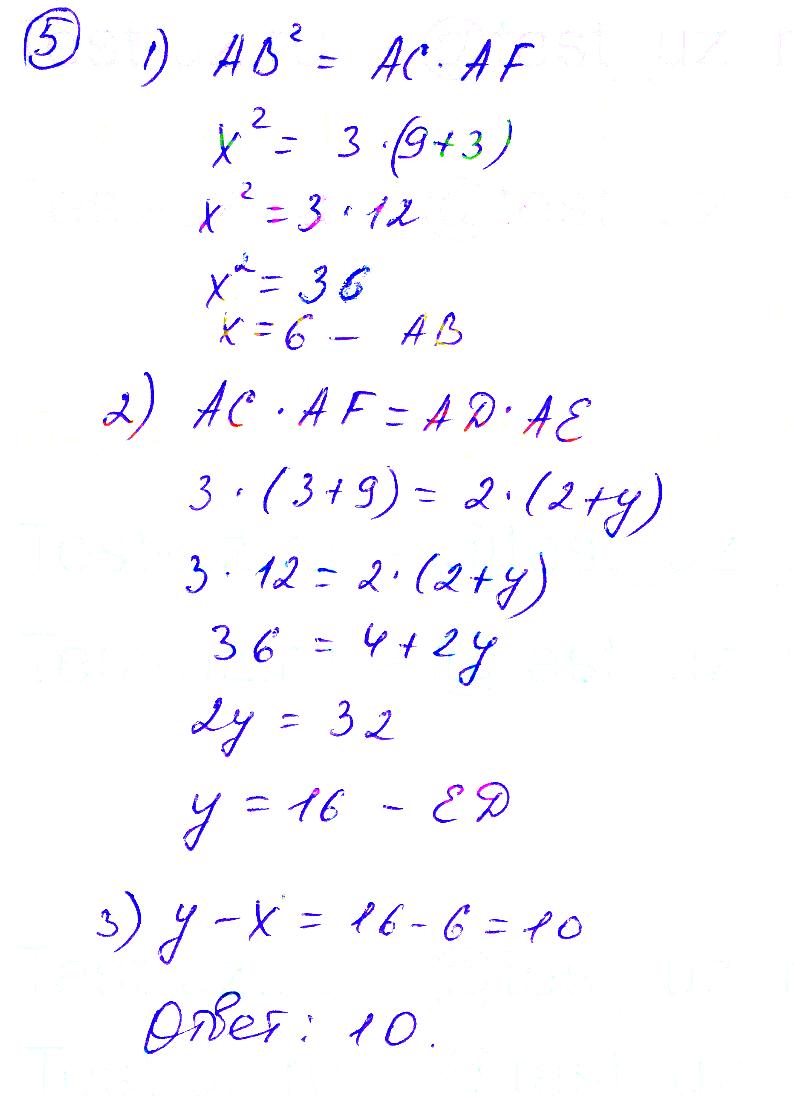 5
1) AB² = AC · AF
x² = 3 · (9+3)
x² = 3 · 12
x² = 36
x = 6 – AB
2) AC · AF = AD · AE
3 · (3+9) = 2 · (2+y)
3 · 12 = 2 · (2+y)
36 = 4 + 2y
2y = 32
y = 16 – ED
3) y – x = 16 - 6 = 10
Ответ: 10.